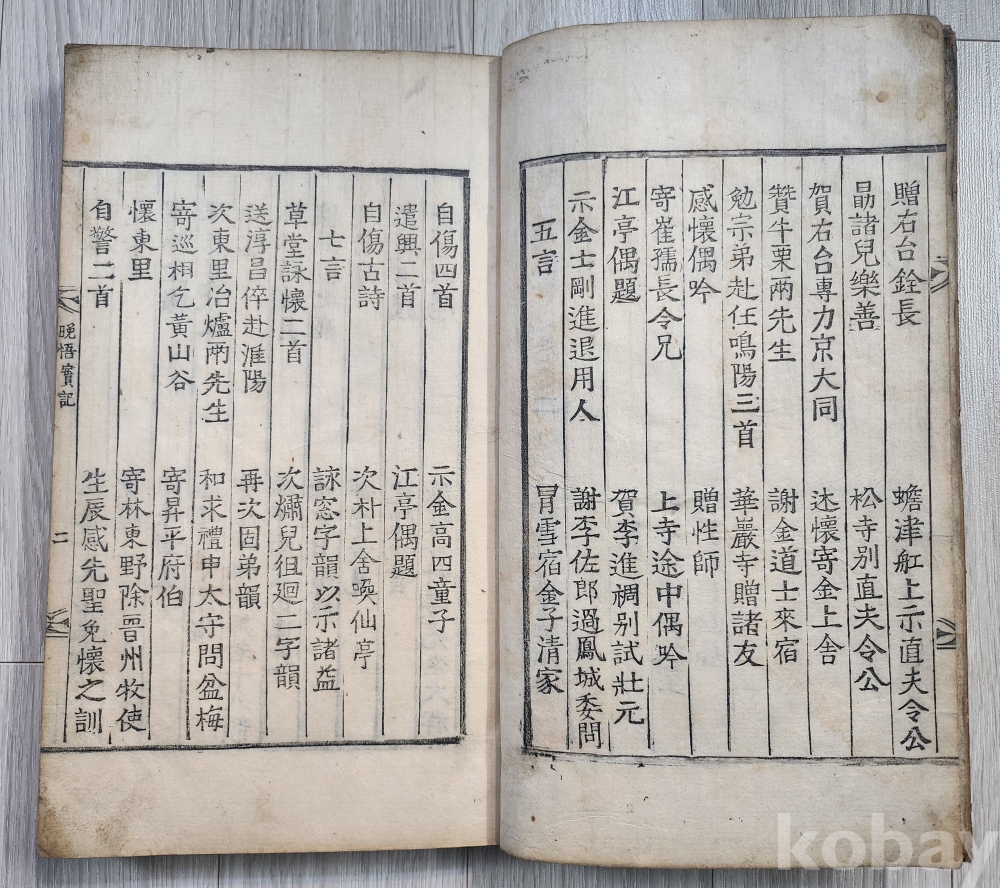 贈右台銓長　蟾津舡上示直夫令公
勗諸兒樂善　松寺別直夫令公
賀右台專力京大同　述懷寄金上舍
贊牛栗兩先生　謝金道士來宿
勉宗弟赴任鳴陽三首　華嚴寺贈諸友
感懷偶吟　贈性師
寄崔孺長令兄　上寺途中偶吟
江亭偶題　賀李進裯別試壯元
示金士剛進退用人　謝李佐郎過鳳城委問
五言　冐雪宿金子清家
自傷四首　示金高四童子
遣興二首　江亭偶題
自傷古詩　次朴上舍喚仙亭
七言　詠窓字韻以示諸益
草堂詠懷二首　次爀兒徂廻二字韻
送淳昌倅赴淮陽　再次固弟韻
次東里冶爐兩先生　和求禮申太守問盆梅
寄巡相乞黃山谷　寄昇平府伯
懷東里　寄林東野除晋州牧使
自警二首　生辰感先聖免懷之訓
晚悟實記　二
kobay